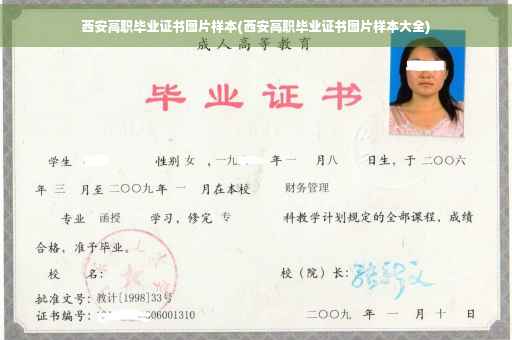 西安高职毕业证书图片样本(西安高职毕业证书图片样本大全)
成人高等教育
毕业证书
学生 性别 女 ,一九 年一 月八 日生,于二〇〇六
年 三 月至二〇〇九年 一 月在本校 财务管理
专业 函授 学习,修完 专 科教学计划规定的全部课程,成绩
合格,准予毕业。
校 名: 校(院)长:
批准文号:教计[1998]33号
证书编号: 06001310 二〇〇九 年 一 月 十 日